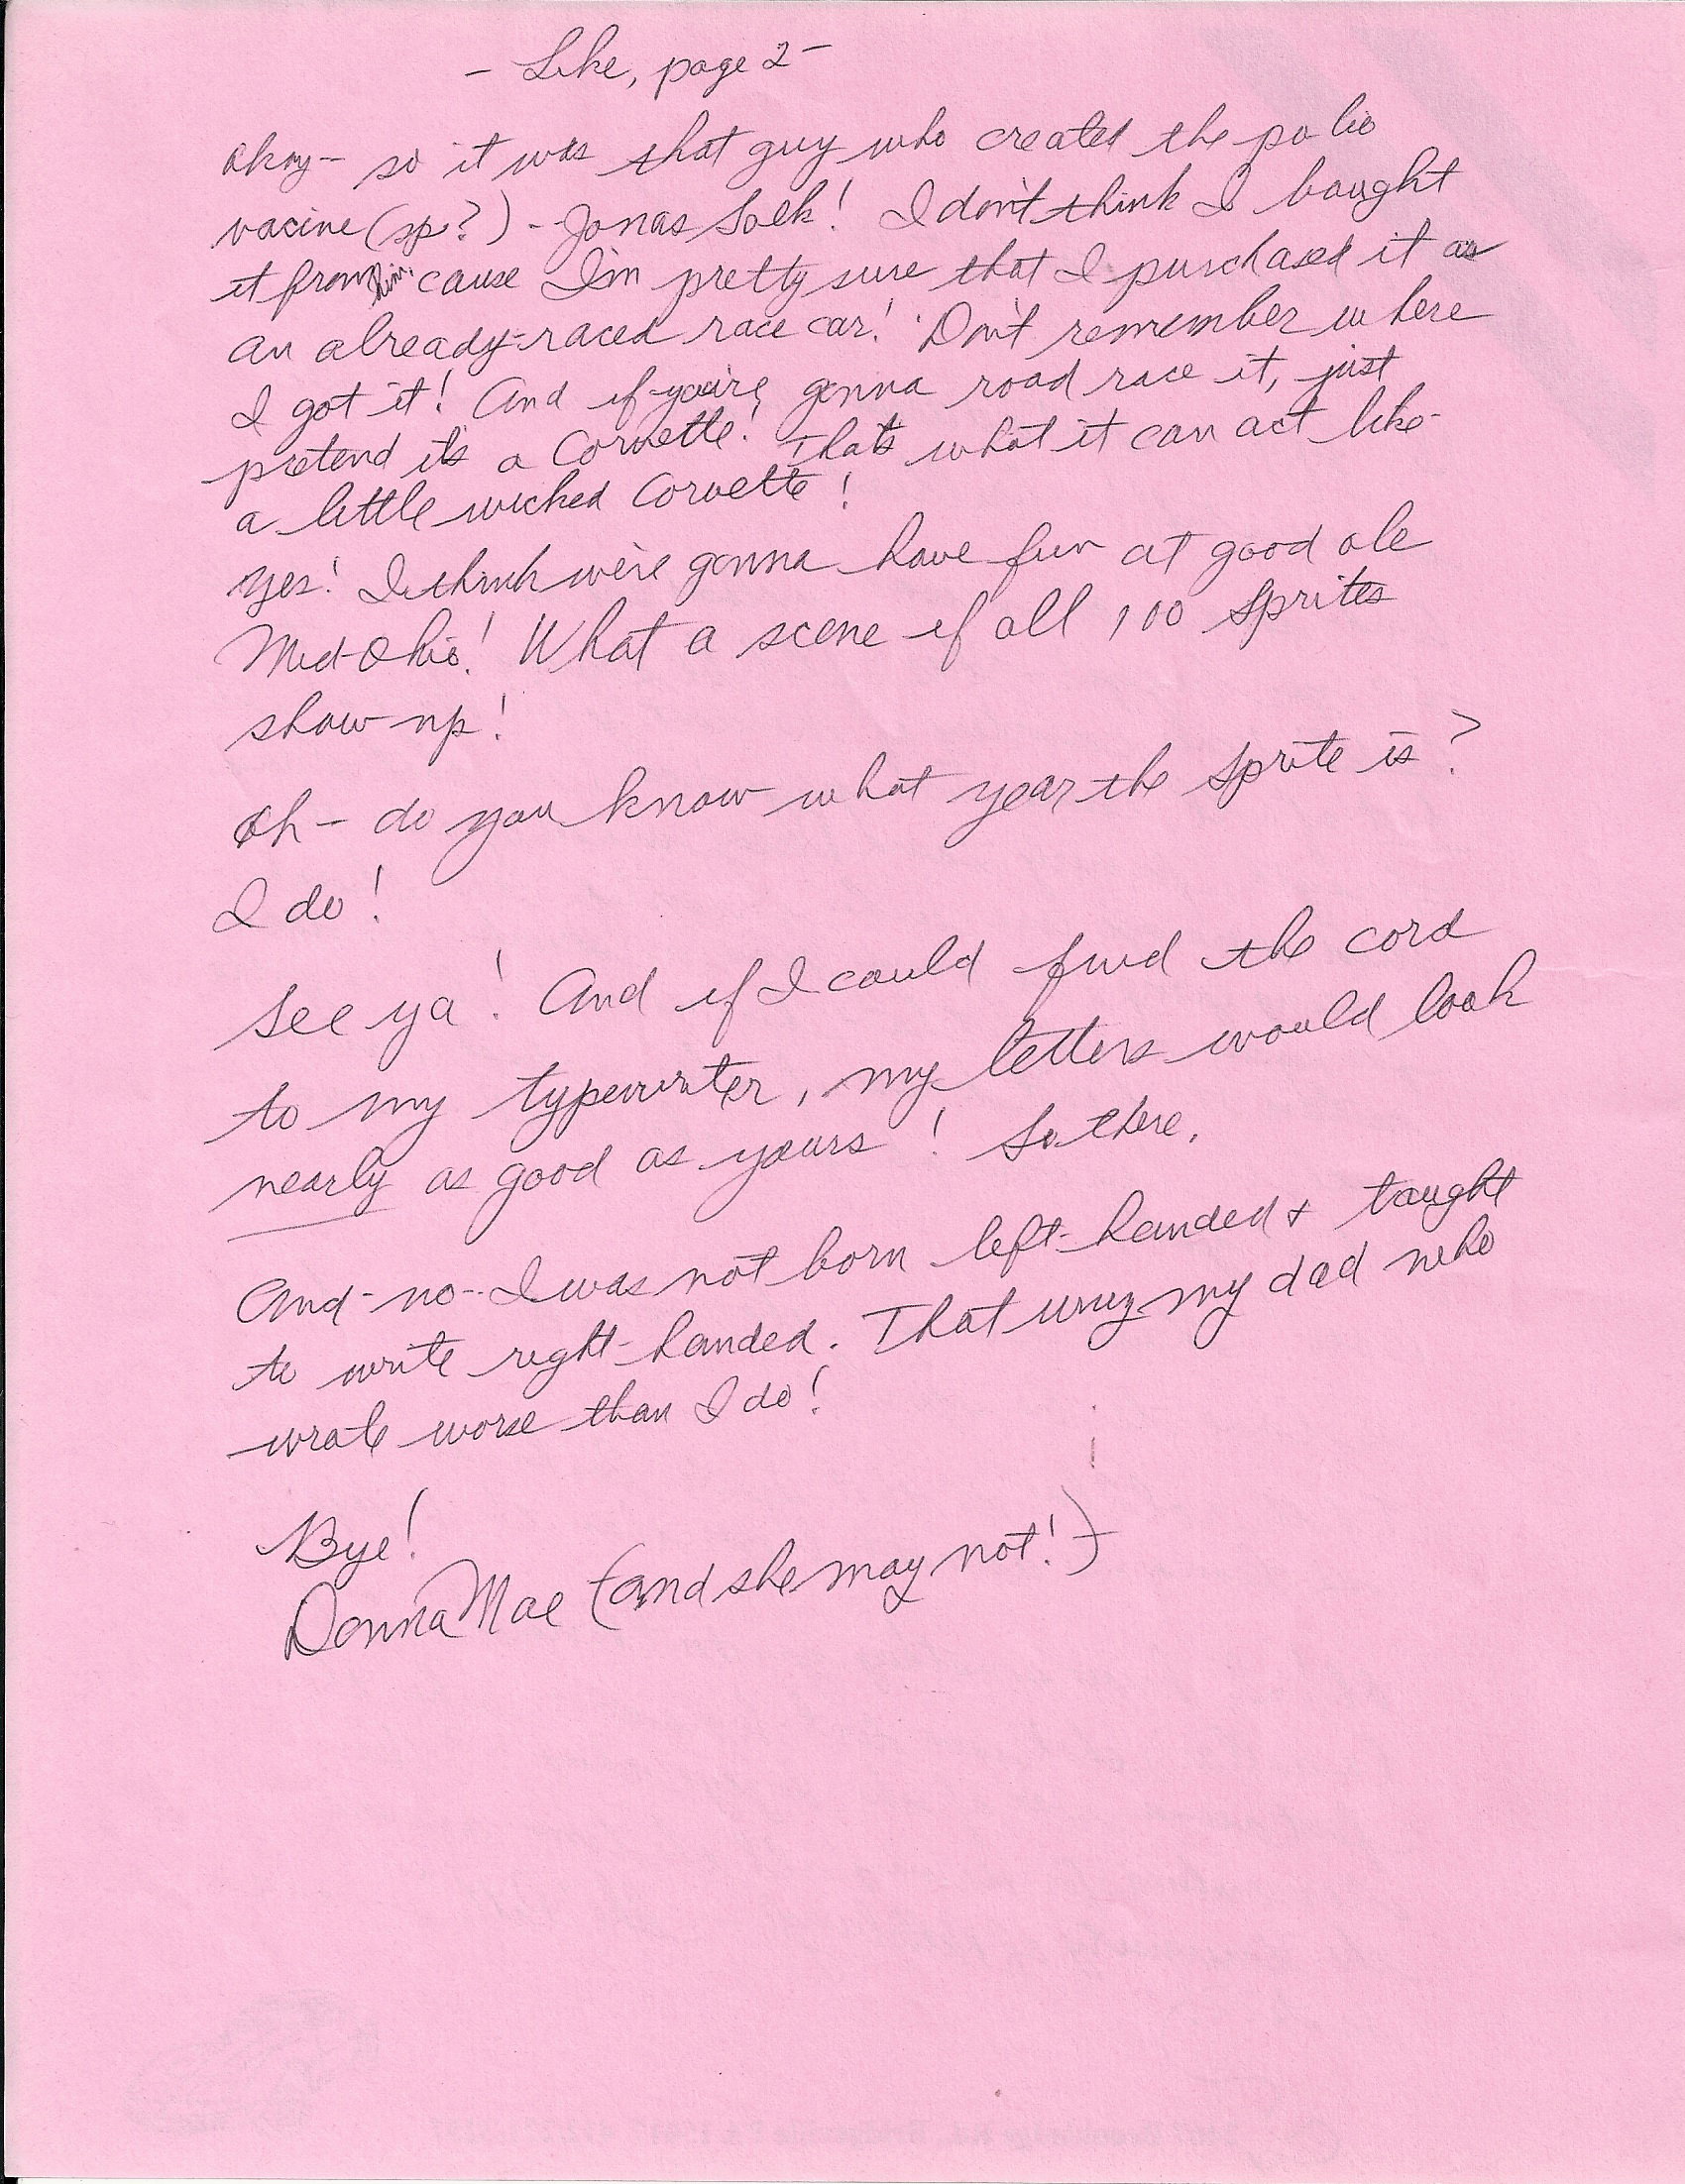 - Like, page 2 -
Okay - so it was that guy who created the polio
vacine (sp?) - Jonas Solk! I don't think I bought
it from him, cause I'm pretty sure that I purchased it as
an already-raced race car! Don't remember where
I got it! And if you're gonna road race it, just
pretend it's a Corvette! That's what it can act like -
a little wicked Corvette!
Yes! I think we're gonna have fun at good ole
Mid-Ohio! What a scene if all 100 Sprites
show up!
Oh - do you know what year the Sprite is?
I do!
See ya! And if I could find the cord
to my typewriter, my letters would look
nearly as good as yours! So there.
And - no - I was not born left-handed & taught
to write right-handed. That was my dad who
wrote worse than I do!
Bye!
Donna Mae (and she may not!)